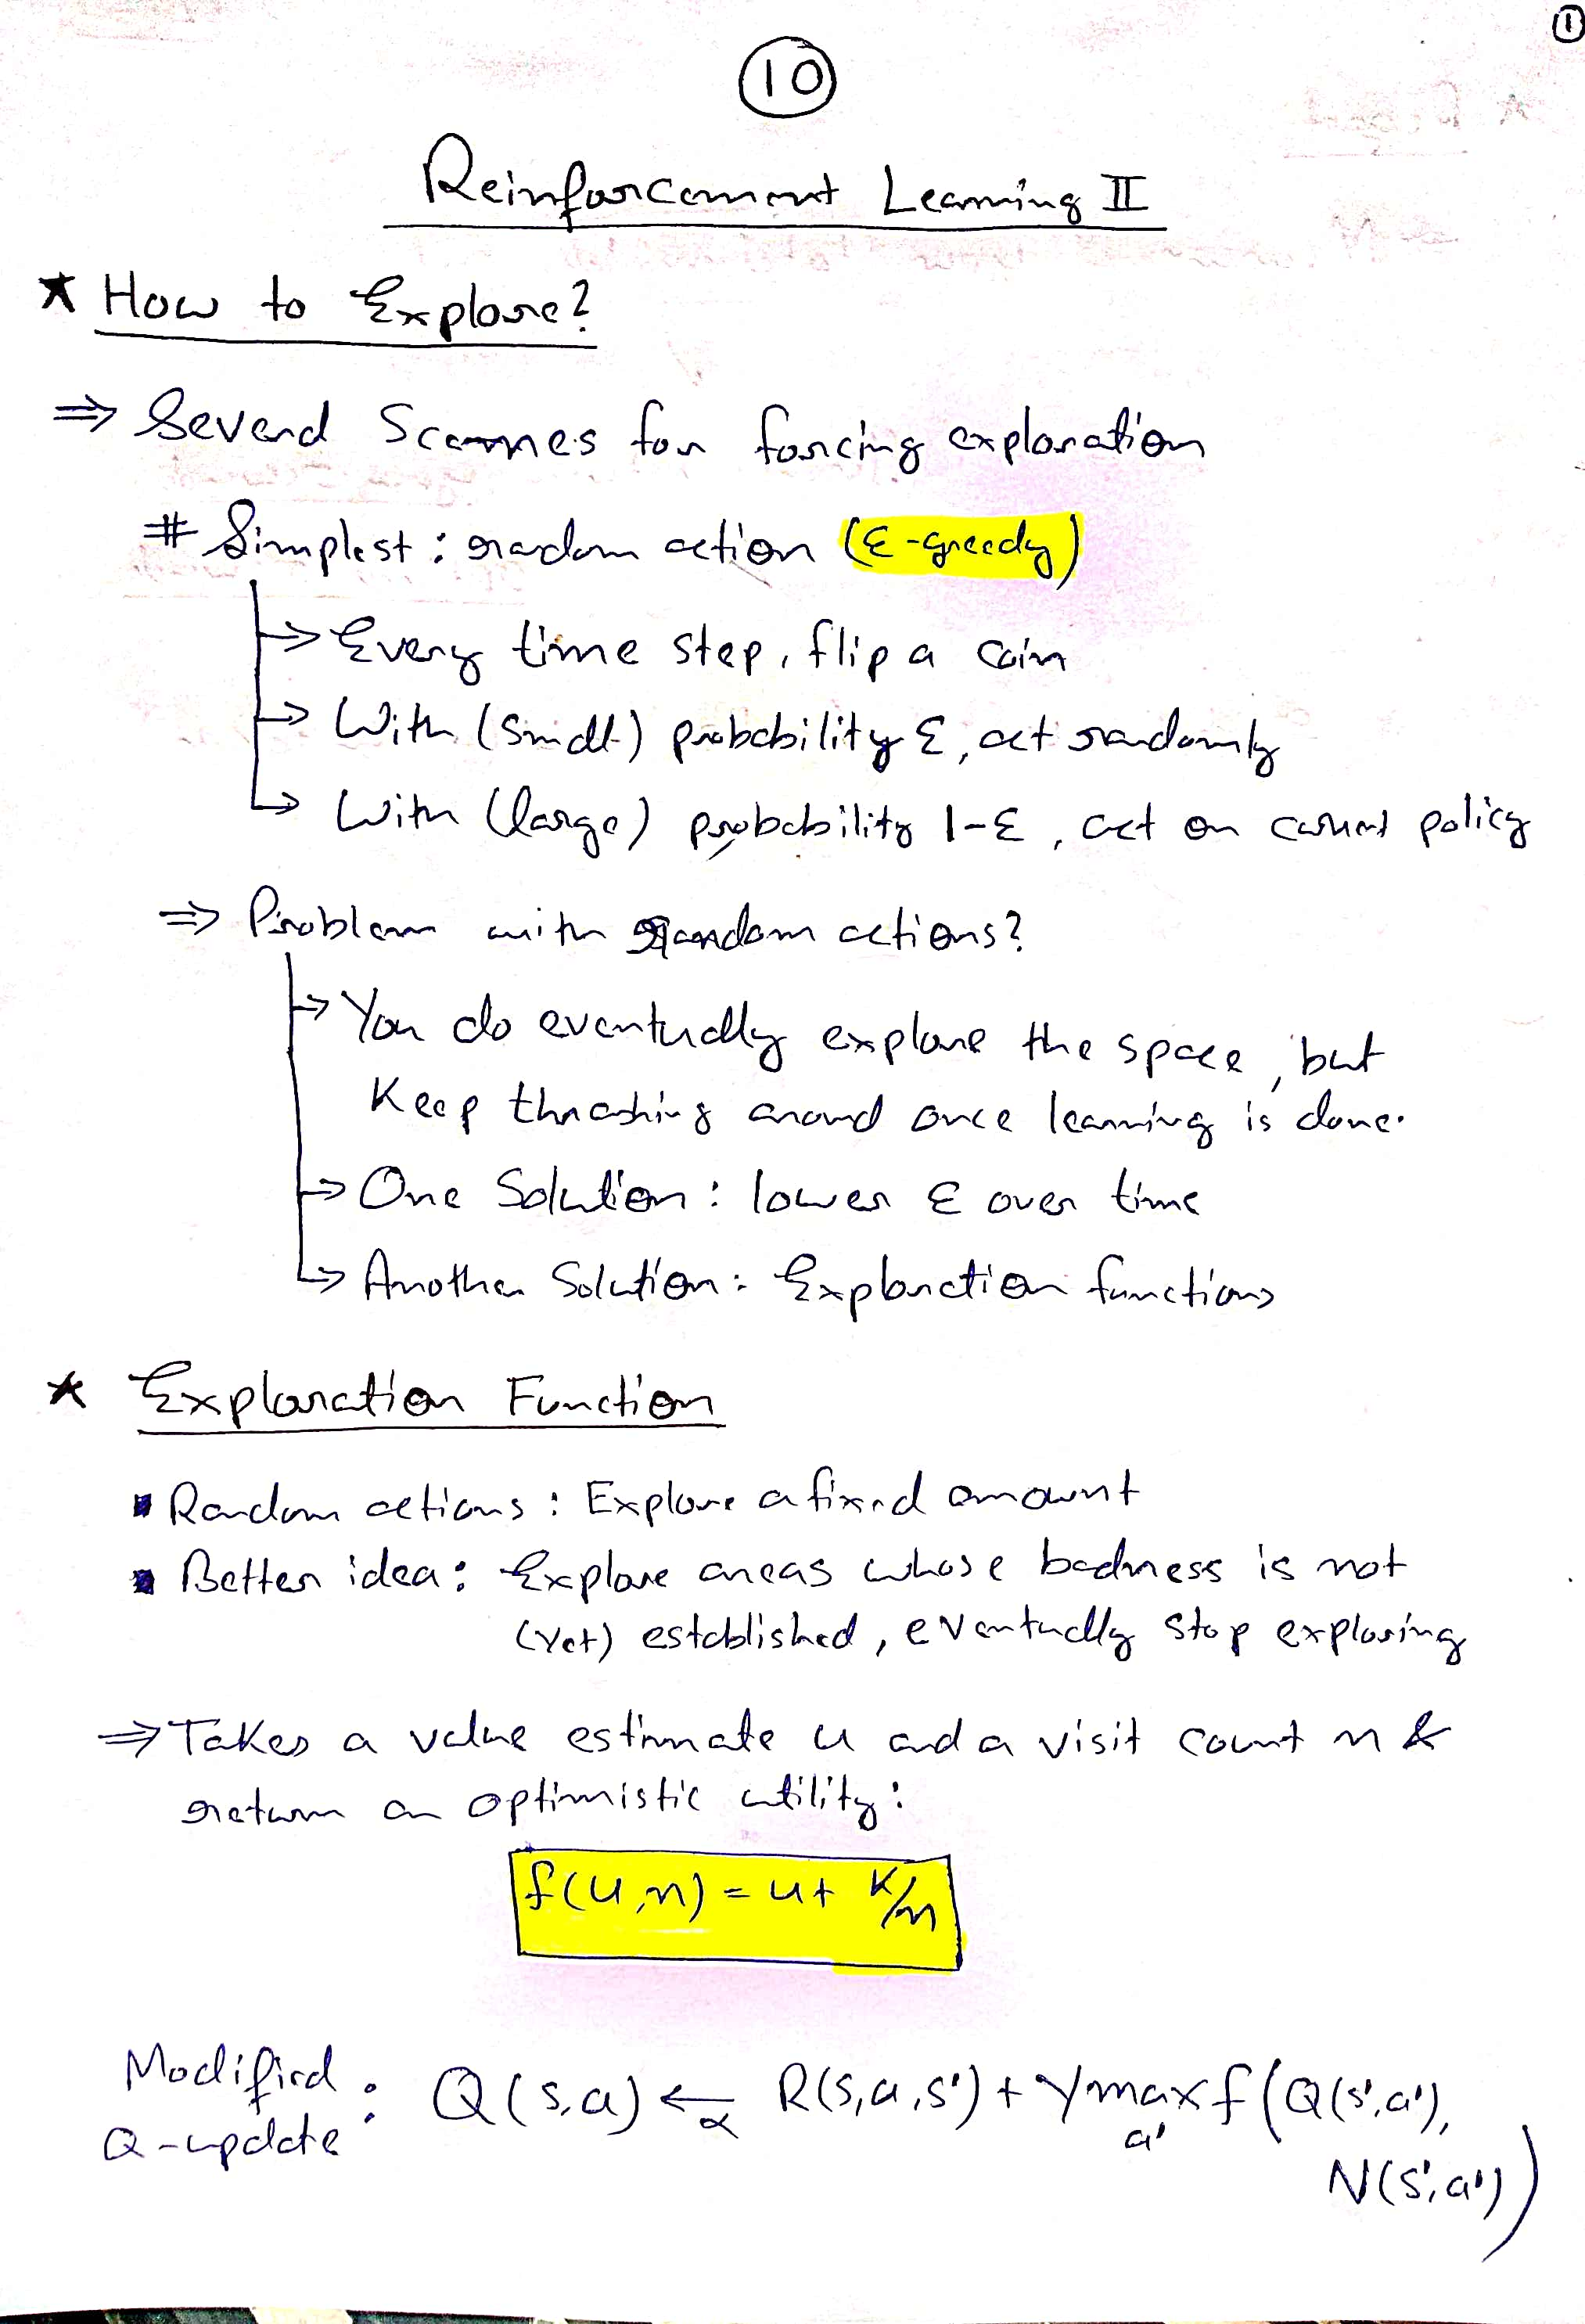 ①
⑩
Reinforcement Learning II
* How to Explore?
⇒ Several Scemmes for forcing exploration
# Simplest : random action (ε-greedy)
→ Every time step, flip a coin
→ With (small) probability ε, act randomly
→ With (large) probability 1-ε, act on current policy
⇒ Problem with random actions?
→ You do eventually explore the space, but
Keep thrashing around once learning is done.
→ One Solution : lower ε over time
→ Another Solution : Exploration functions
* Exploration Function
▪ Random actions : Explore a fixed amount
▪ Better idea : Explore areas whose badness is not
(yet) established, eventually stop exploring
⇒ Takes a value estimate u and a visit count n &
return an optimistic utility :
f(u,n) = u + k/n
Modified
Q-update : Q(s,a) ←α R(s,a,s') + γ max a' f(Q(s',a'),
N(s',a'))